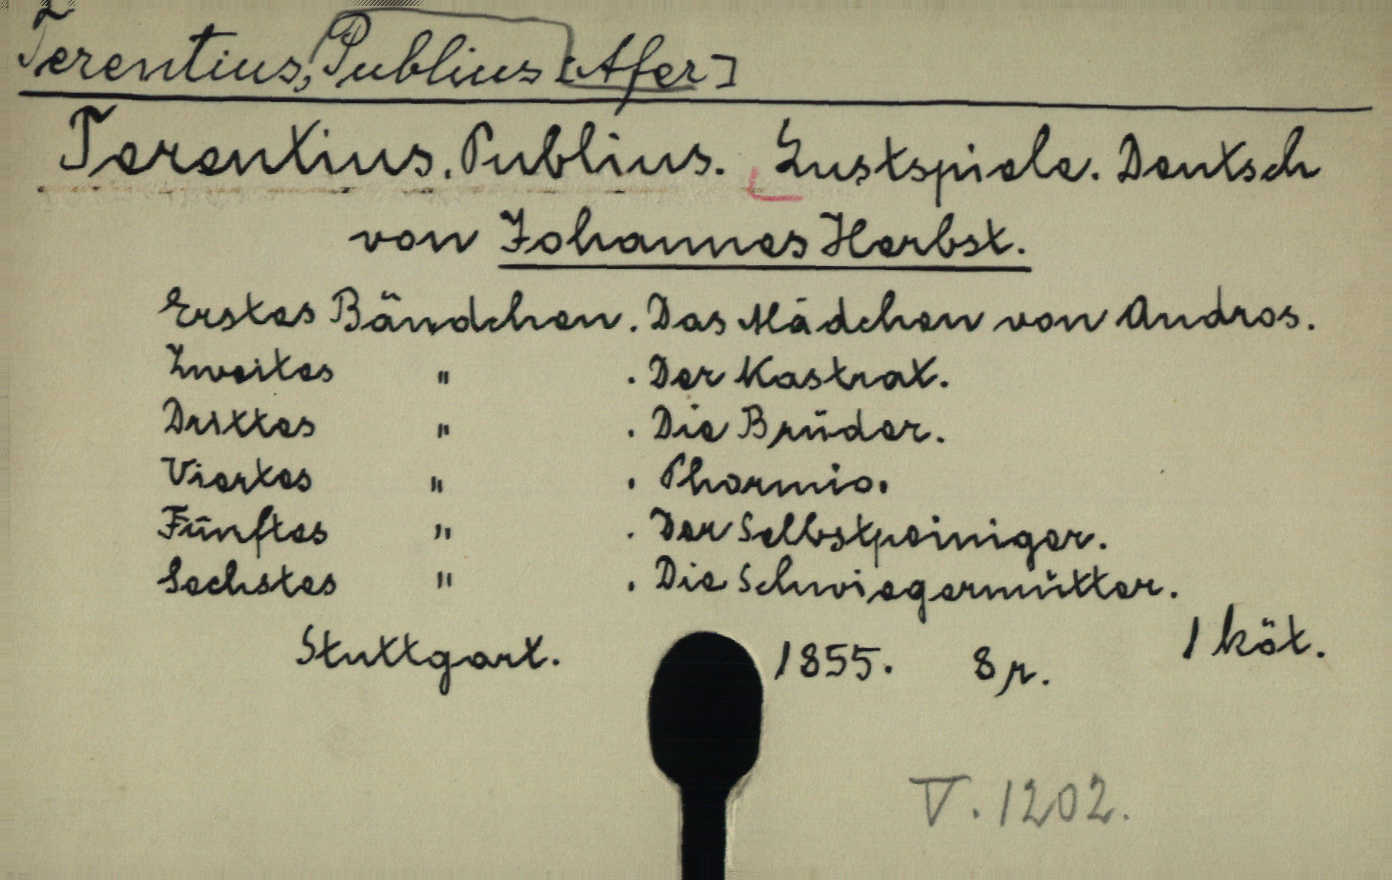 Terentius, Publius [Afer]
Terentius, Publius. Lustspiele. Deutsch
von Johannes Herbst.
Erstes Bändchen. Das Mädchen von Andros.
Zweites " . Der Kastrat.
Drittes " . Die Brüder.
Viertes " . Phormio.
Fünftes " . Der Selbstpeiniger.
Sechstes " . Die Schwiegermütter.
Stuttgart. 1855. 8 r. 1 köt.
V. 1202.